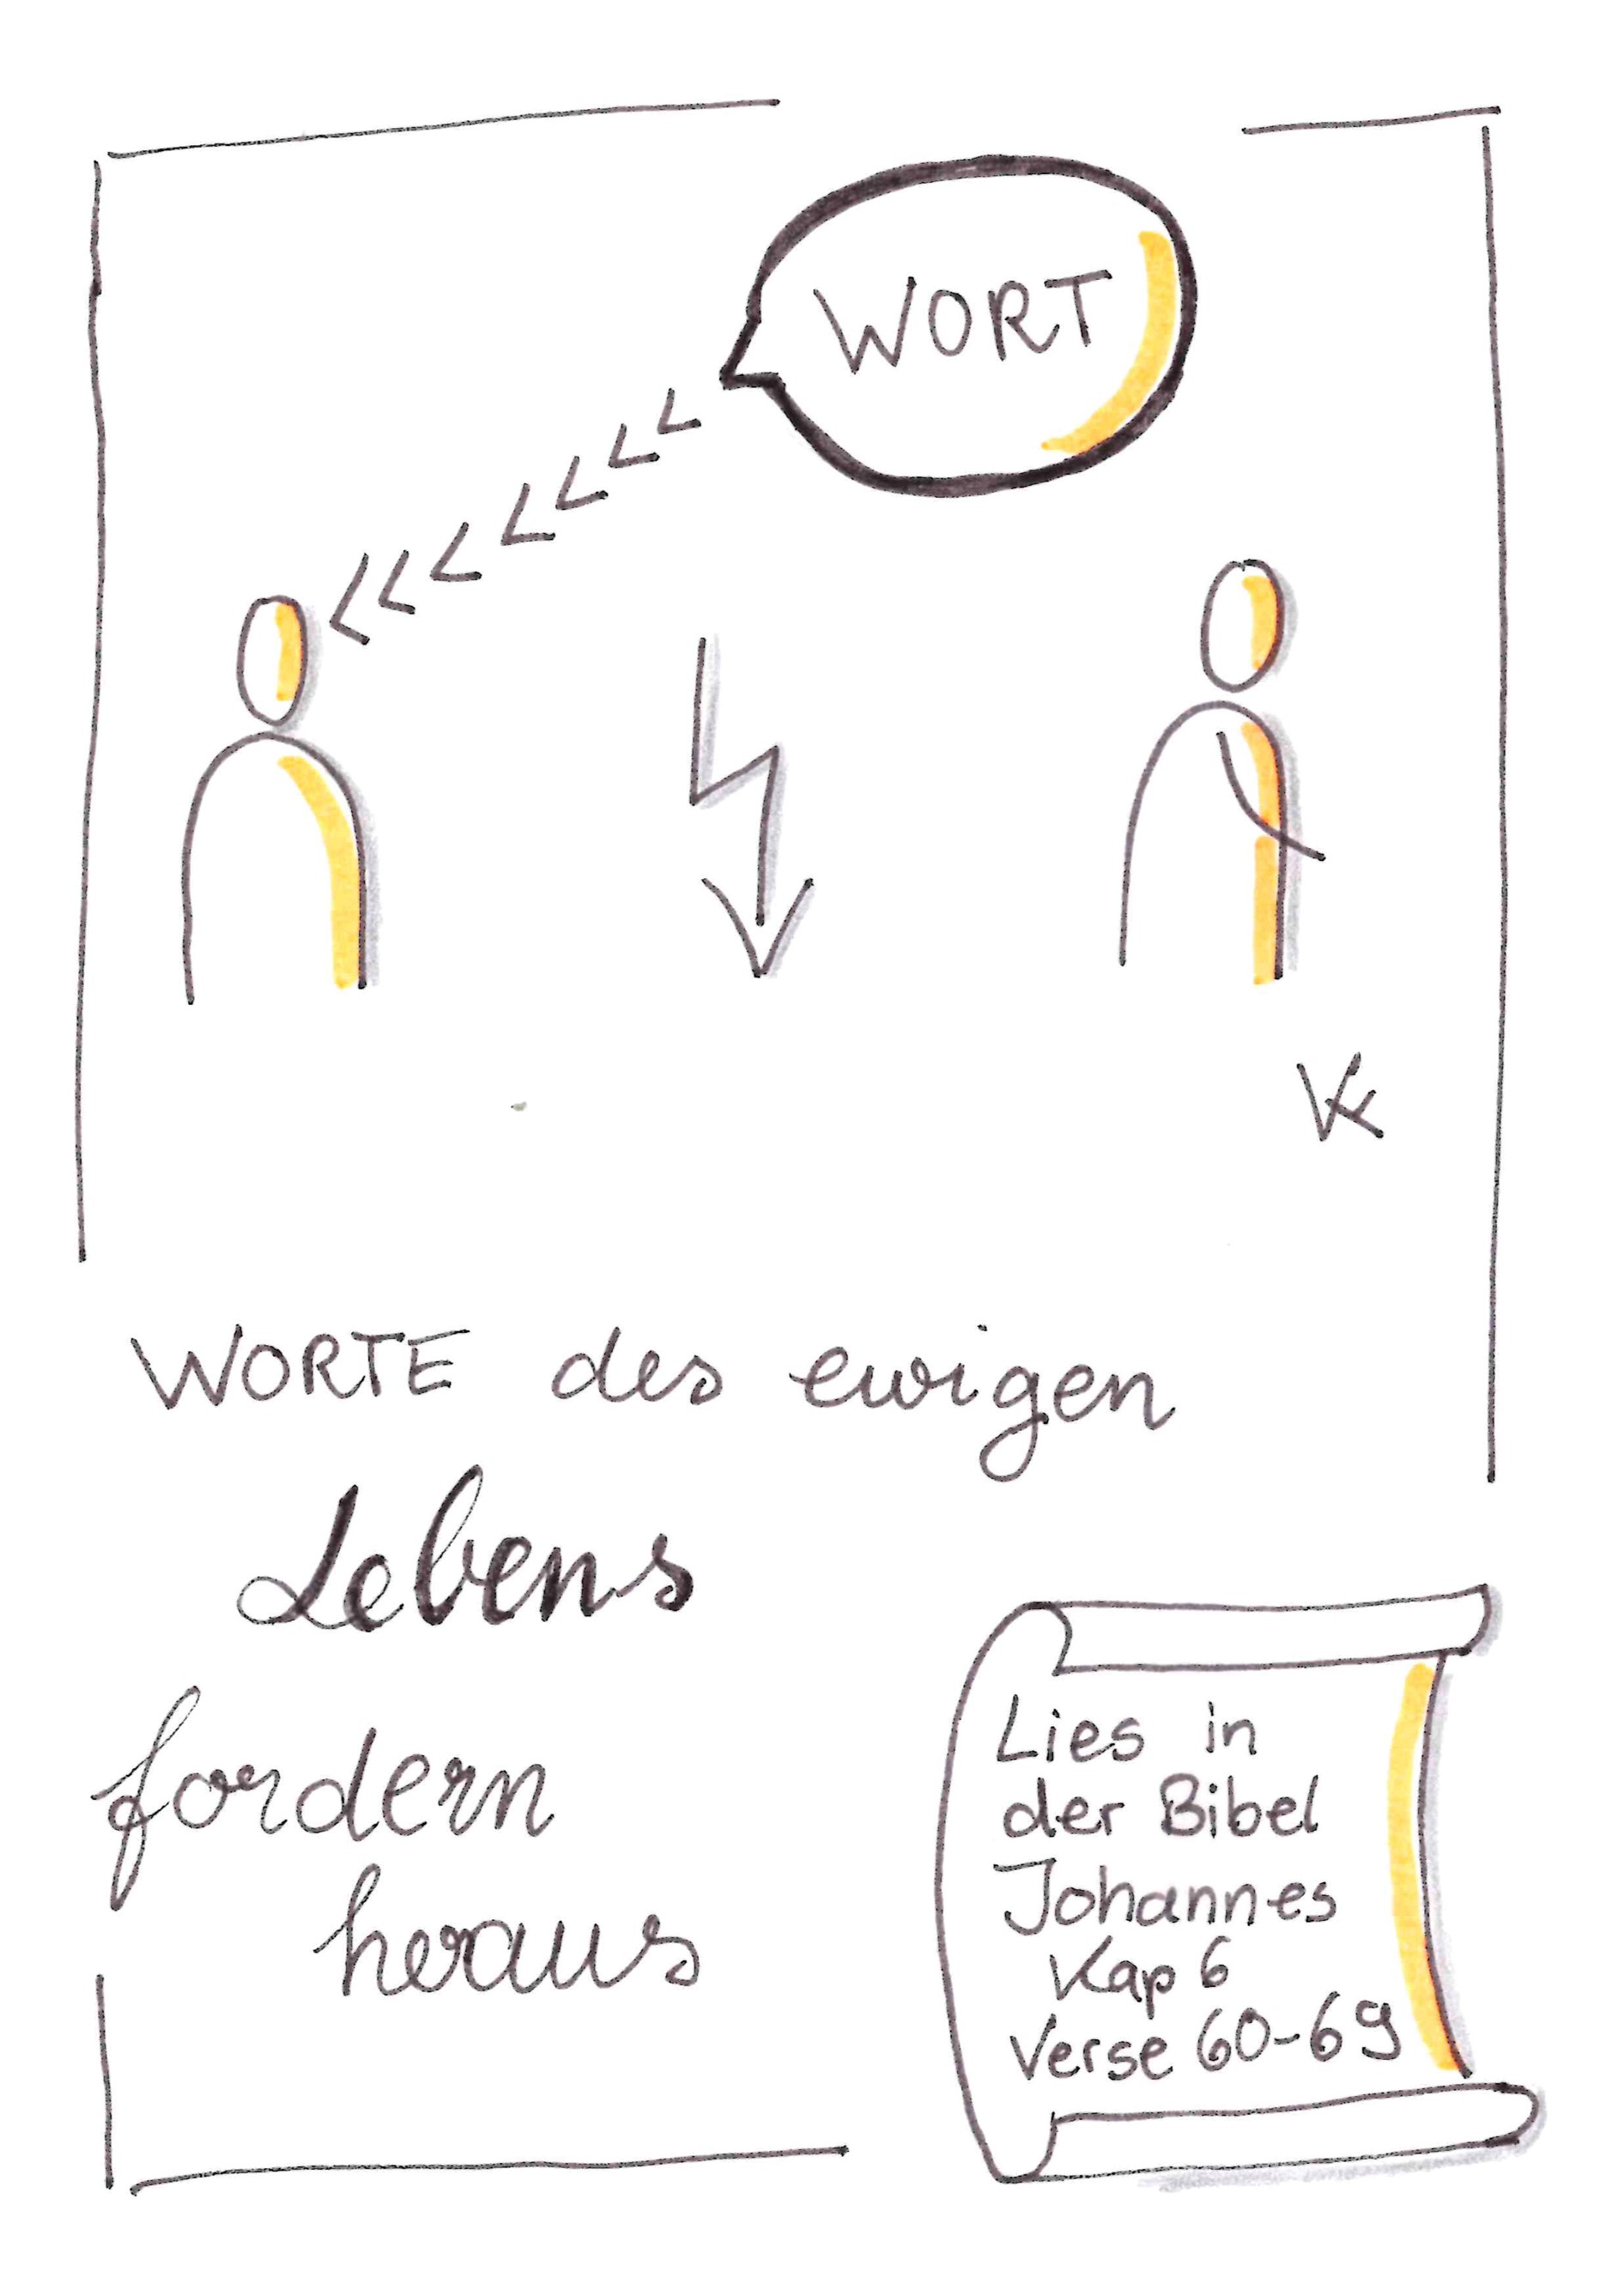 WORT
VK
WORTE des ewigen
Lebens
fordern
heraus
Lies in
der Bibel
Johannes
Kap 6
Verse 60-69